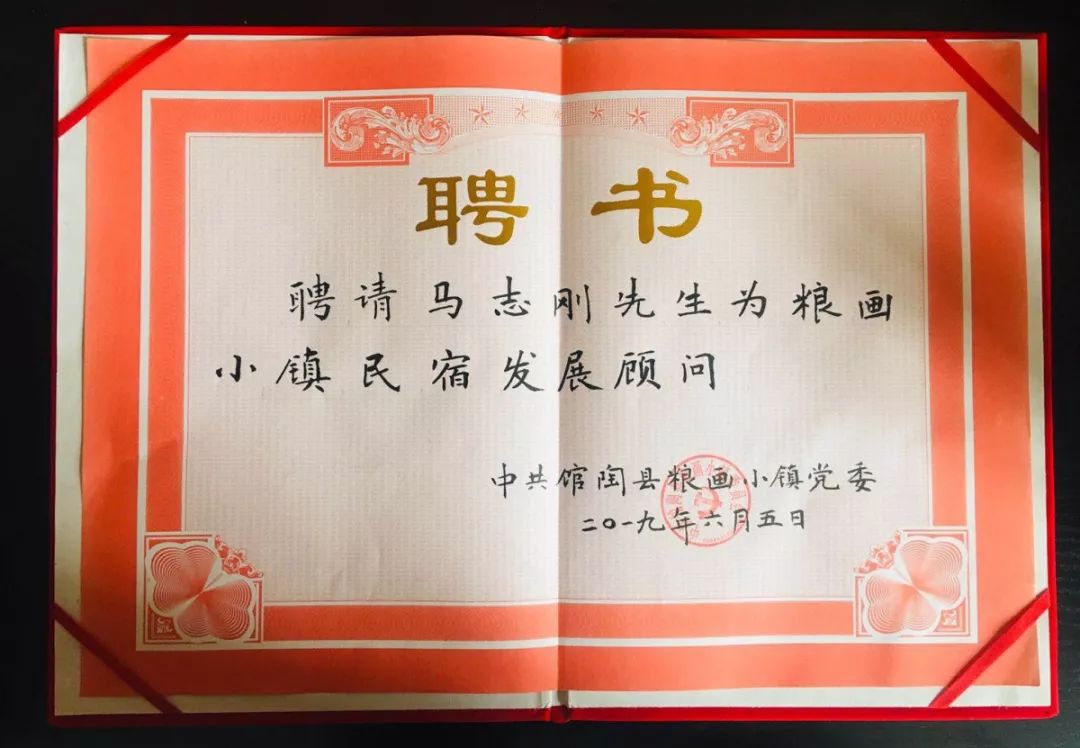 聘书
聘请马志刚先生为粮画
小镇民宿发展顾问
中共馆陶县粮画小镇党委
二〇一九年六月五日